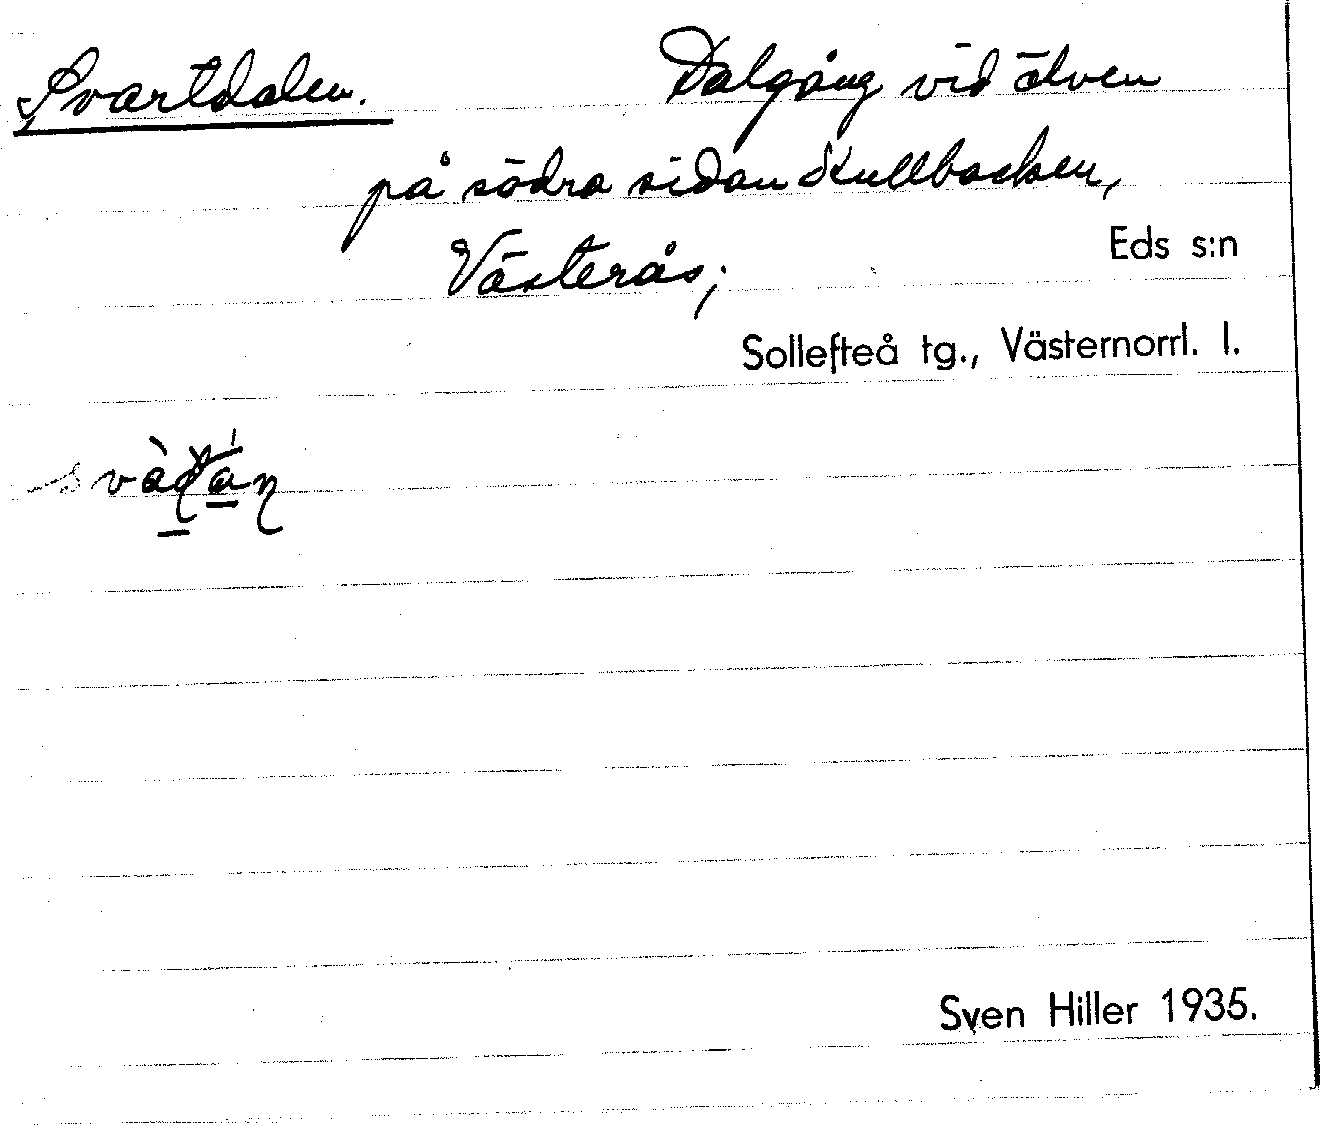 Svartdalen. Dalgång vid älven
på södra sidan Kullbacken,
Västerås;
Eds s:n
Sollefteå tg., Västernorrl. l.
Sven Hiller 1935.